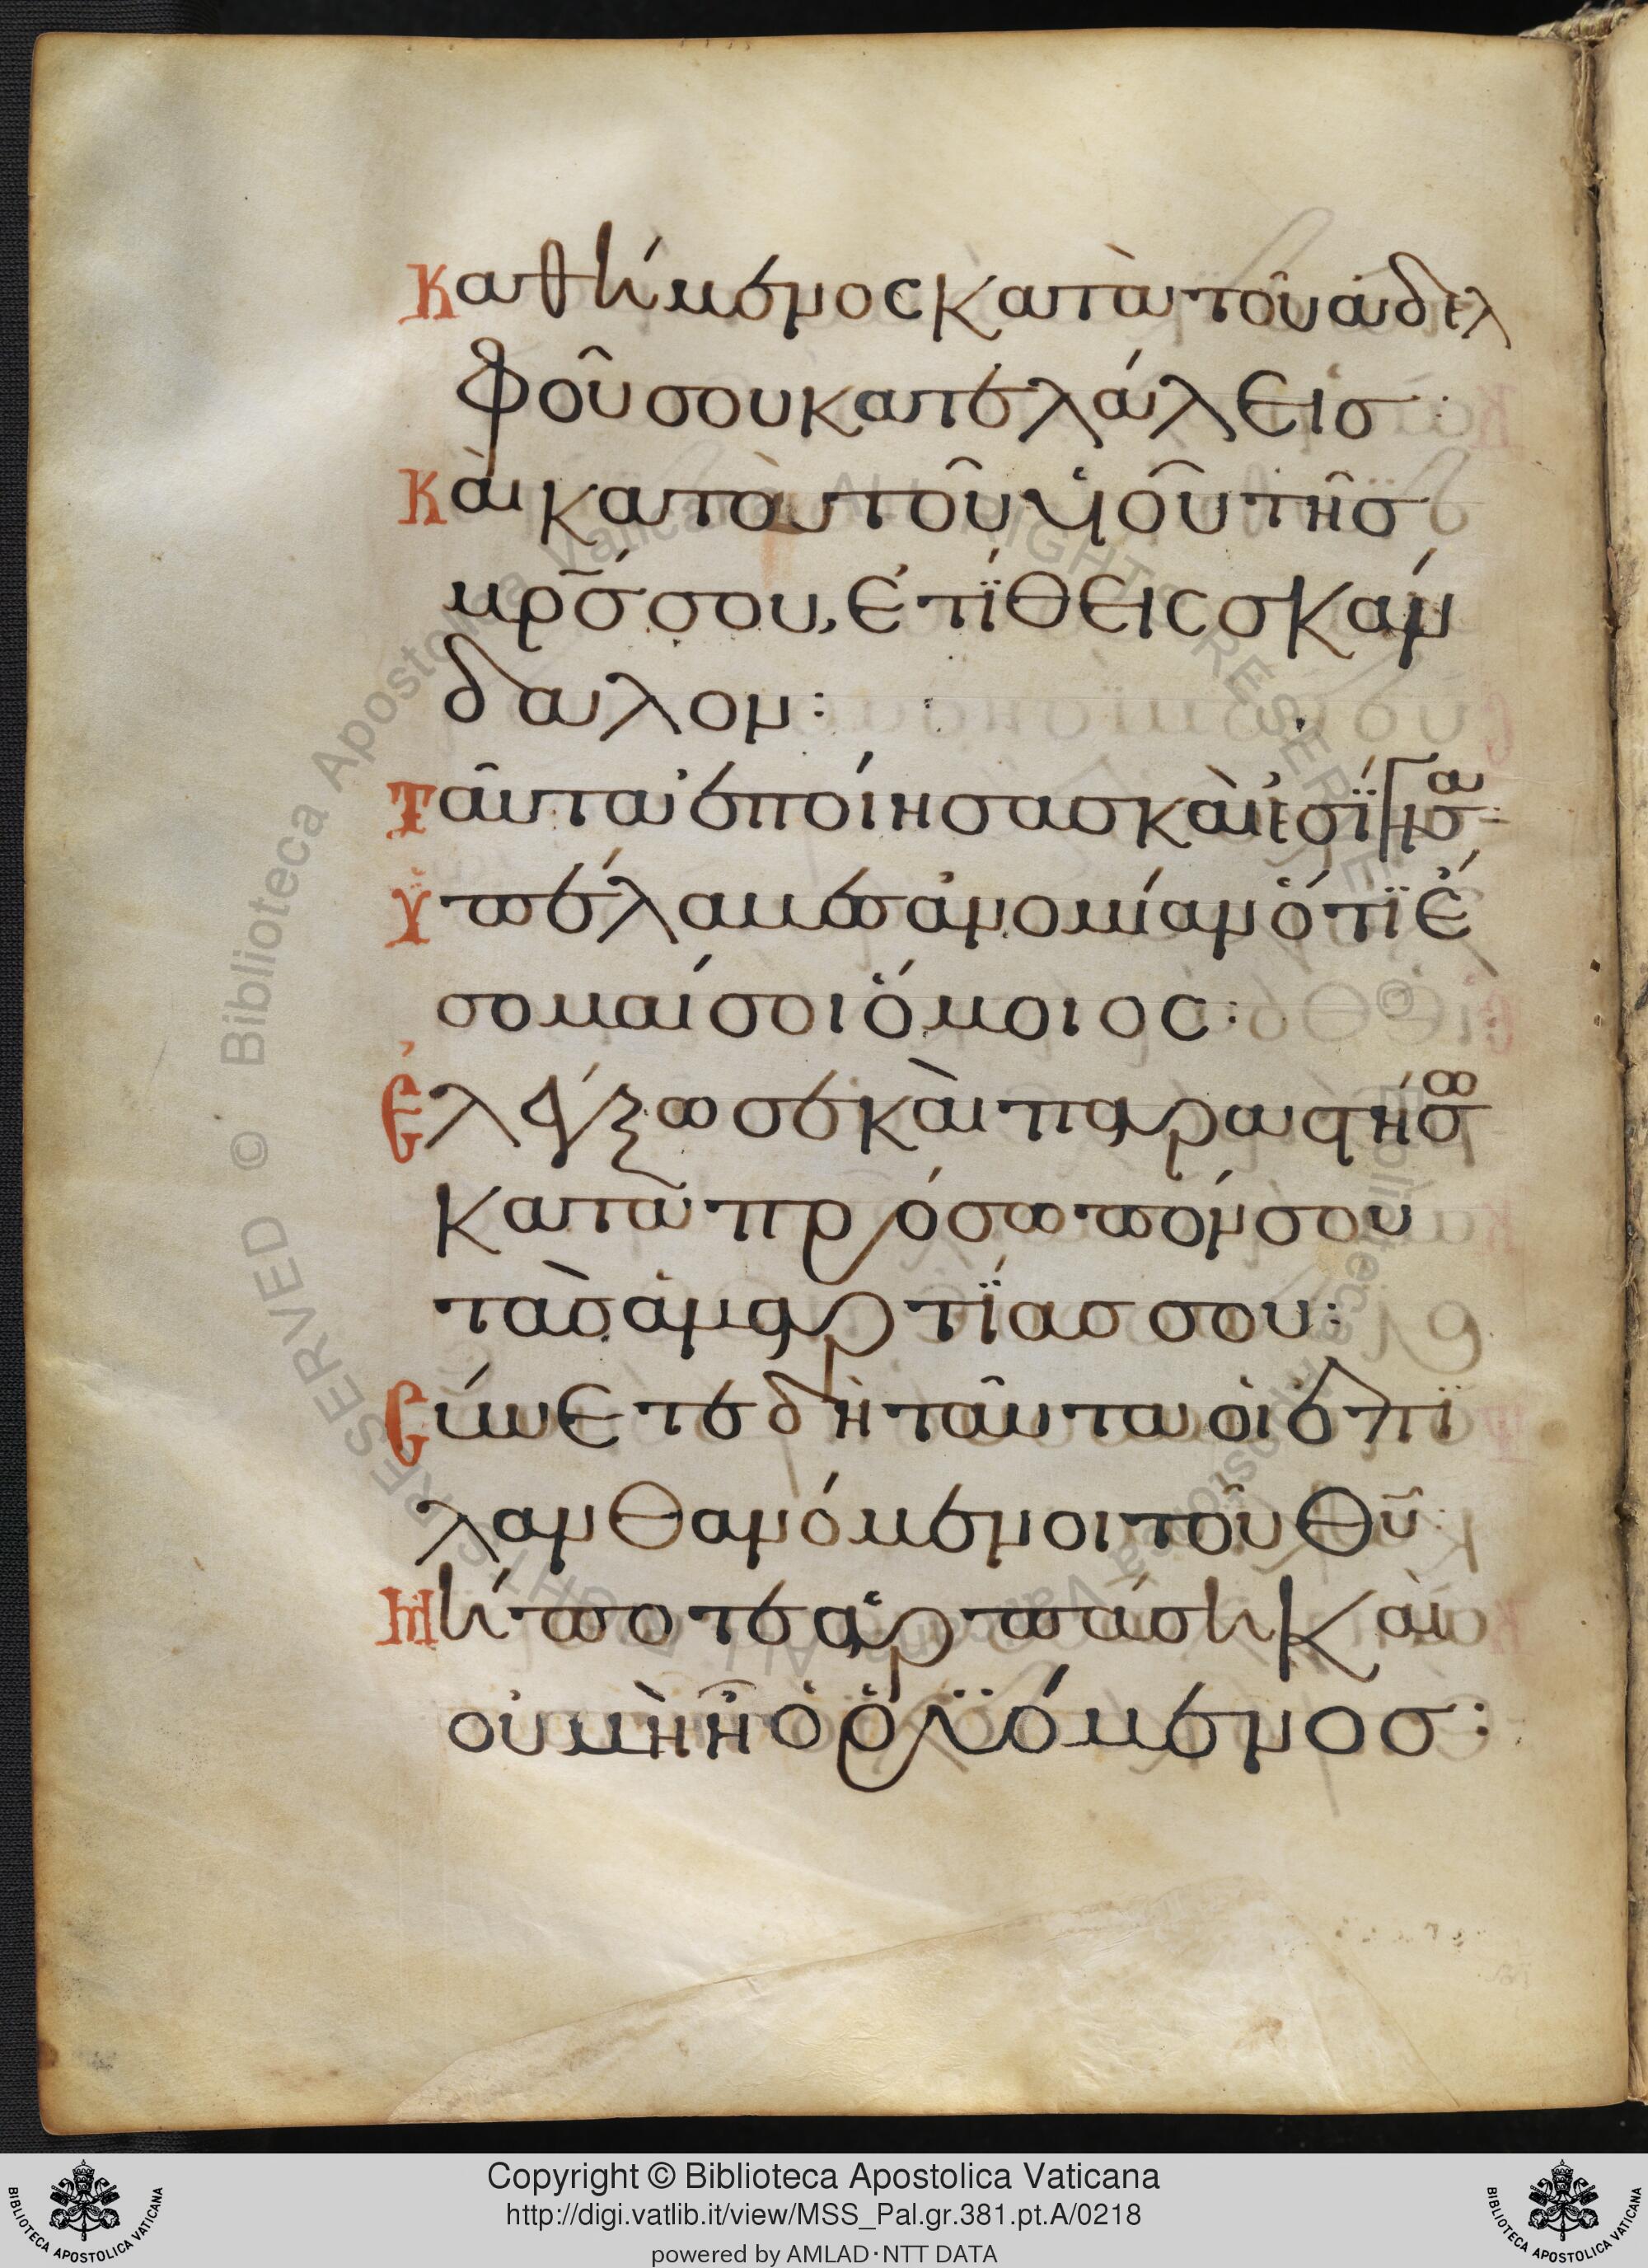 Καθήμενος κατὰ τοῦ ἀδελ
φοῦ σου κατελάλεις :
Καὶ κατὰ τοῦ υἱοῦ τῆς
μρ̅ς σου, ἐτίθεις σκάν
δαλον :
Ταῦτα ἐποίησας καὶ ἐσίγησα :
Ὑπέλαβες ἀνομίαν ὅτι ἔ
σομαί σοι ὅμοιος :
Ἐλέγξω σε καὶ παραστήσω
κατὰ πρόσωπόν σου
τὰς ἁμαρτίας σου :
Σύνετε δὴ ταῦτα οἱ ἐπι
λανθανόμενοι τοῦ θυ̅ :
Μήποτε ἁρπάσῃ καὶ
οὐ μὴ ᾖ ὁ ῥυόμενος :
Copyright © Biblioteca Apostolica Vaticana
http://digi.vatlib.it/view/MSS_Pal.gr.381.pt.A/0218
powered by AMLAD·NTT DATA